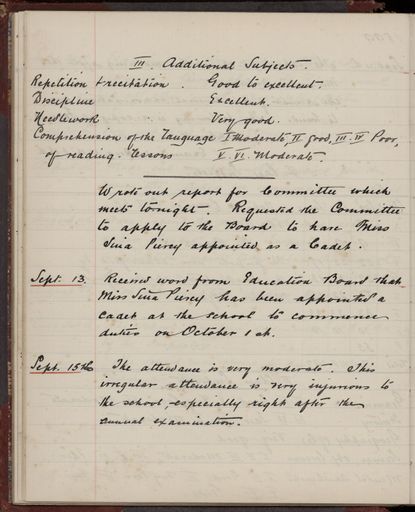 III. Additional Subjects.
Repetition & recitation. Good to excellent.
Discipline Excellent.
Needlework Very good.
Comprehension of the language I Moderate, II good, III. IV Poor,
of reading lessons V. VI. Moderate.
Wrote out report for Committee which
meets tonight. Requested the Committee
to apply to the Board to have Miss
Sina Piercy appointed as a Cadet.
Sept. 13. Received word from Education Board that
Miss Sina Piercy has been appointed a
cadet at the school to commence
duties on October 1st.
Sept. 15th The attendance is very moderate. This
irregular attendance is very injurious to
the school, especially right after the
annual examination.